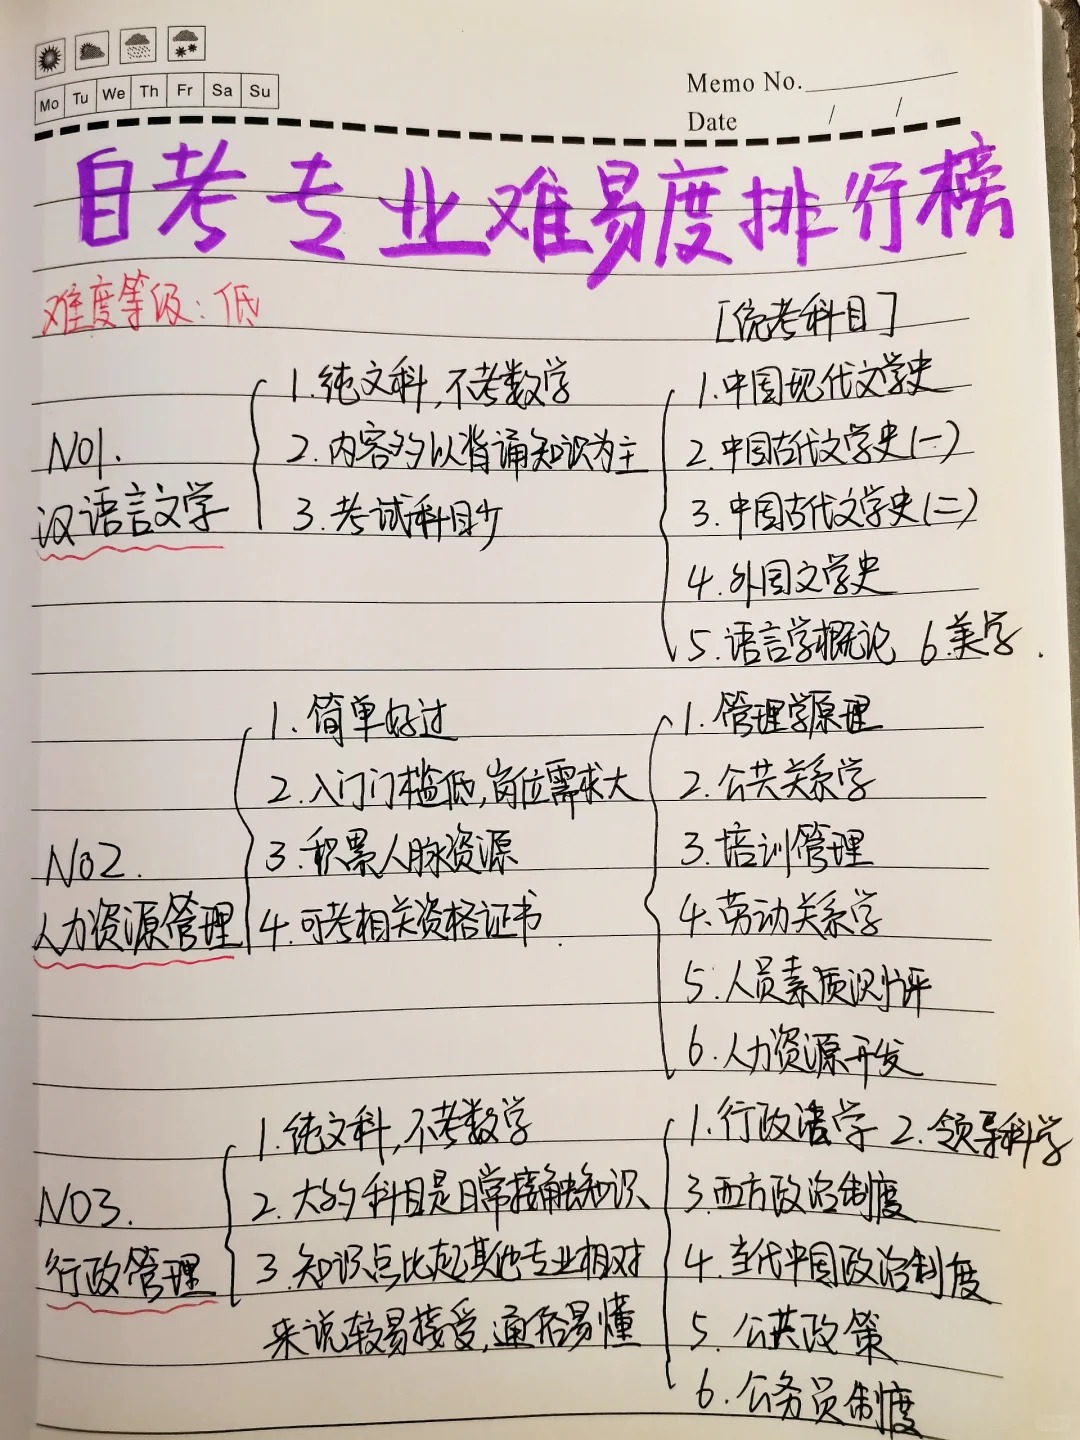 Mo Tu We Th Fr Sa Su
Memo No.
Date / /
自考专业难易度排行榜
难度等级：低
[统考科目]
NO1.
汉语言文学
1.纯文科,不考数学
2.内容多以背诵知识为主
3.考试科目少
1.中国现代文学史
2.中国古代文学史(一)
3.中国古代文学史(二)
4.外国文学史
5.语言学概论 6.美学.
NO2.
人力资源管理
1.简单好过
2.入门门槛低,岗位需求大
3.积累人脉资源
4.可考相关资格证书.
1.管理学原理
2.公共关系学
3.培训管理
4.劳动关系学
5.人员素质测评
6.人力资源开发
NO3.
行政管理
1.纯文科,不考数学
2.大多科目是日常接触知识
3.知识点比起其他专业相对
来说较易接受,通俗易懂
1.行政法学 2.领导科学
3.西方政治制度
4.当代中国政治制度
5.公共政策
6.公务员制度